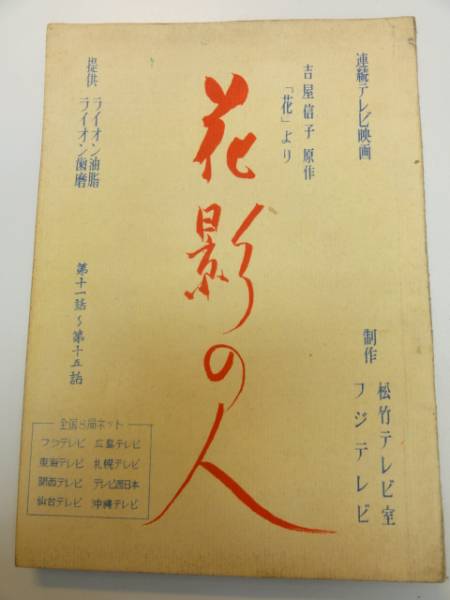 連続テレビ映画
吉屋信子 原作
「花」より
花影の人
提供 ライオン油脂
ライオン歯磨
第十一話〜第十五話
制作 松竹テレビ室
フジテレビ
全国8局ネット
フジテレビ 広島テレビ
東海テレビ 札幌テレビ
関西テレビ テレビ西日本
仙台テレビ 沖縄テレビ